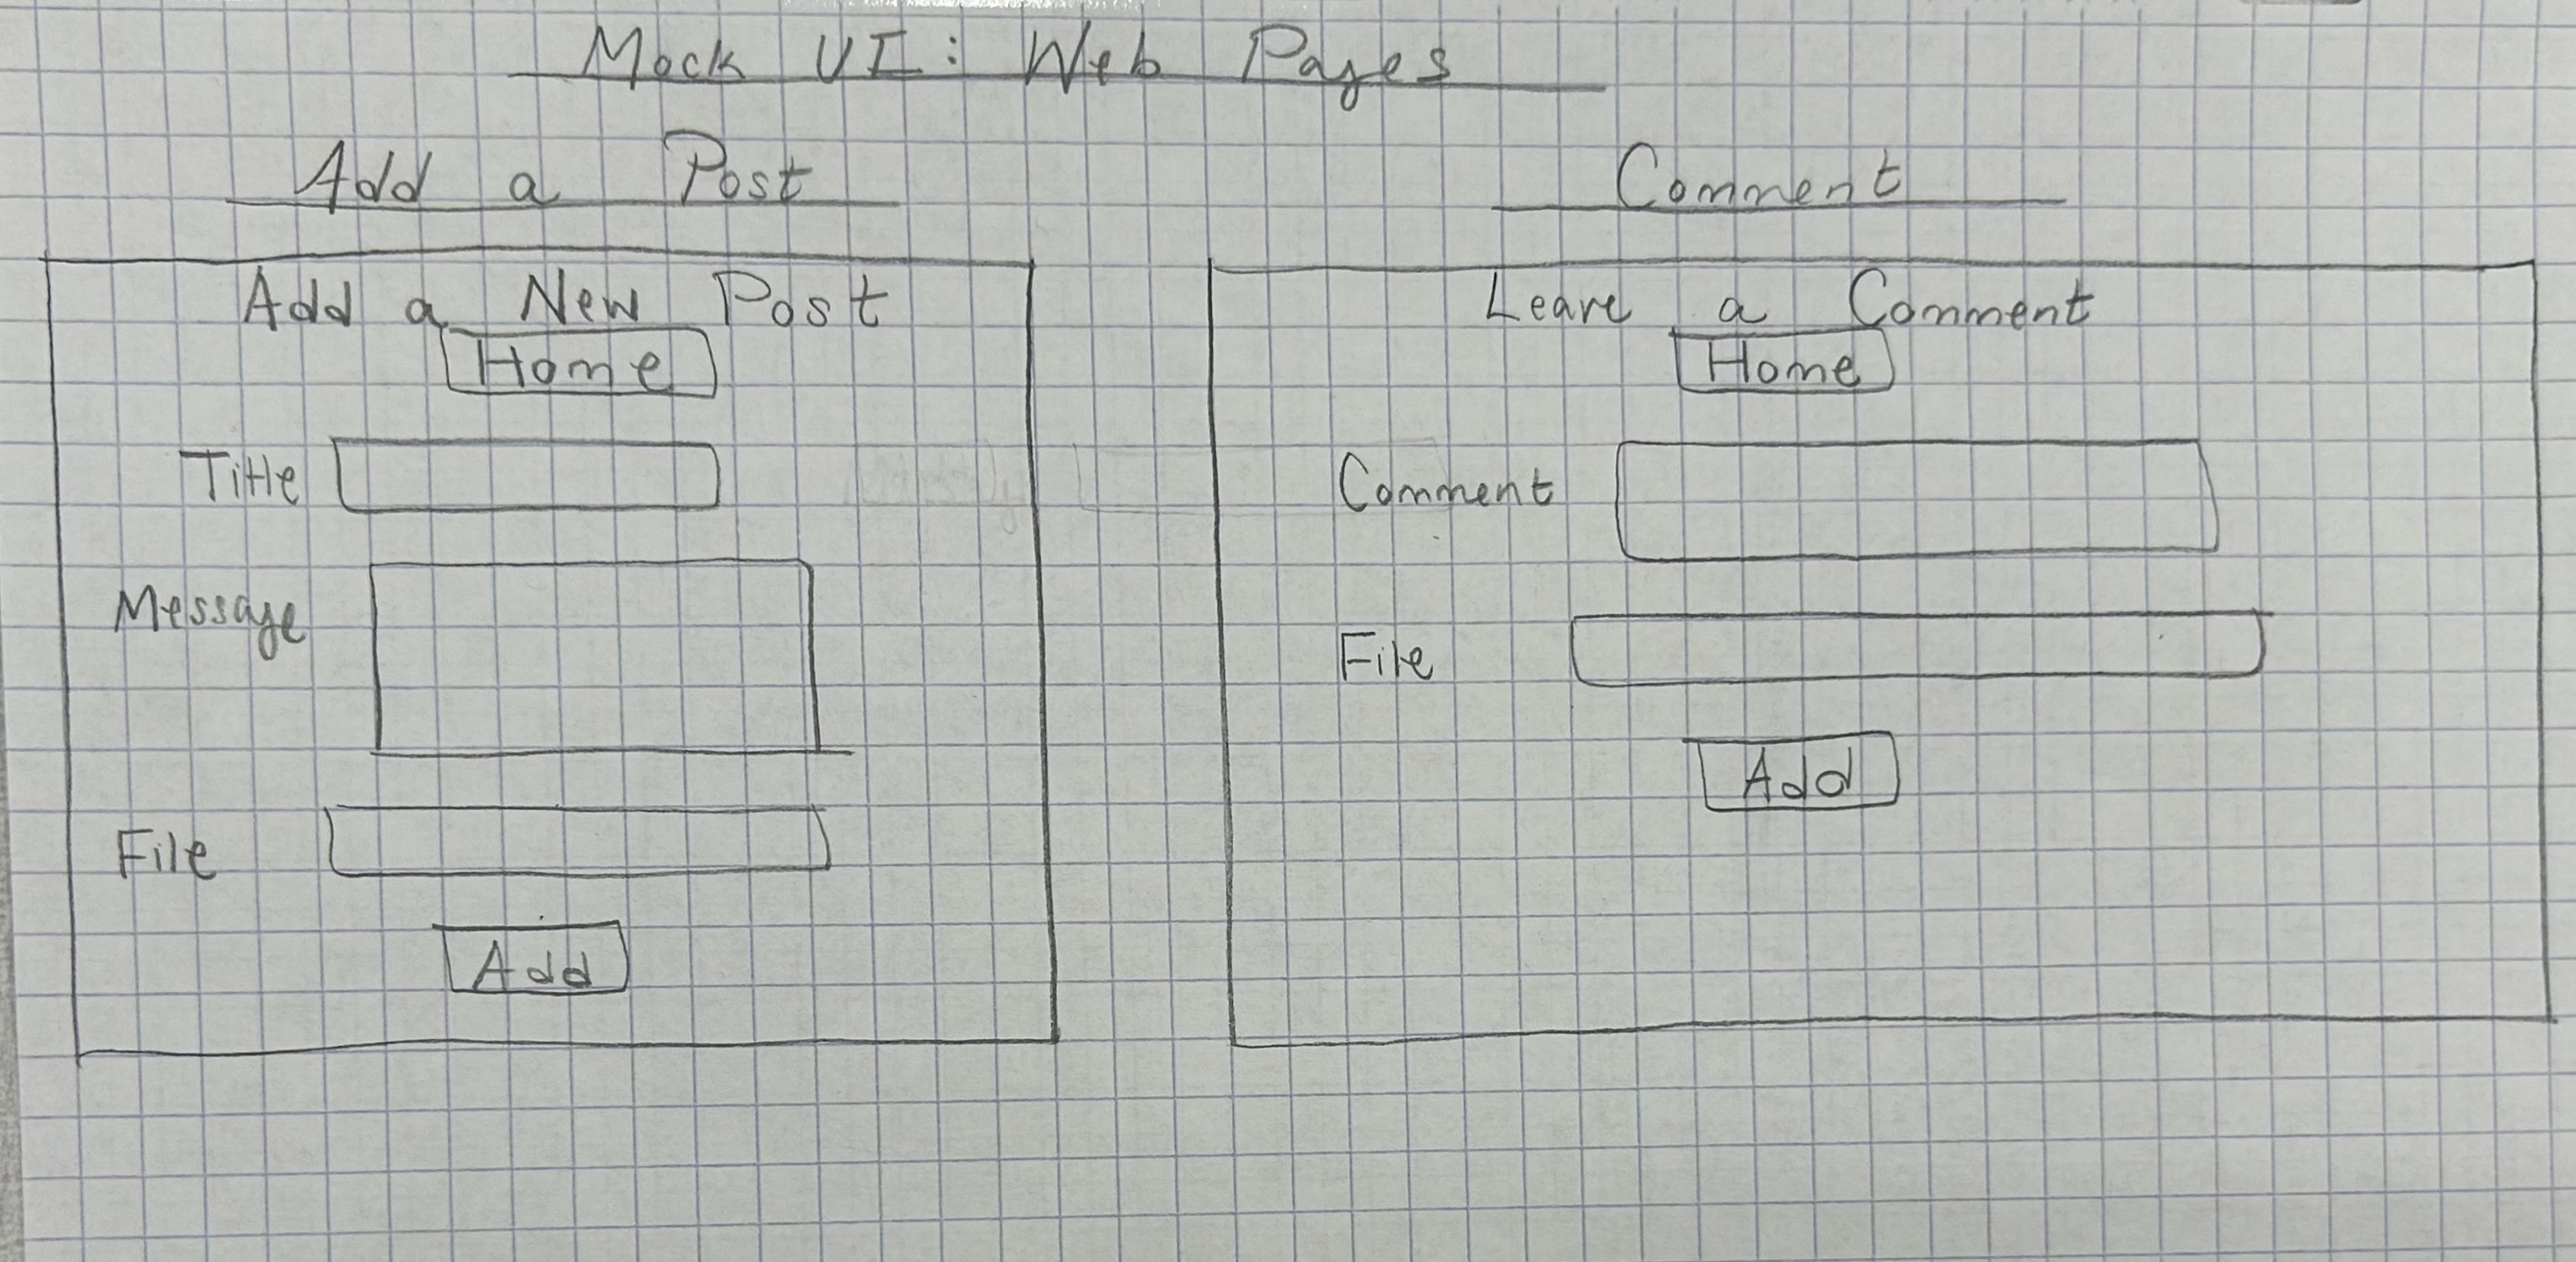 Mock UI: Web Pages
Add a Post
Add a New Post
Home
Title
Message
File
Add
Comment
Leave a Comment
Home
Comment
File
Add